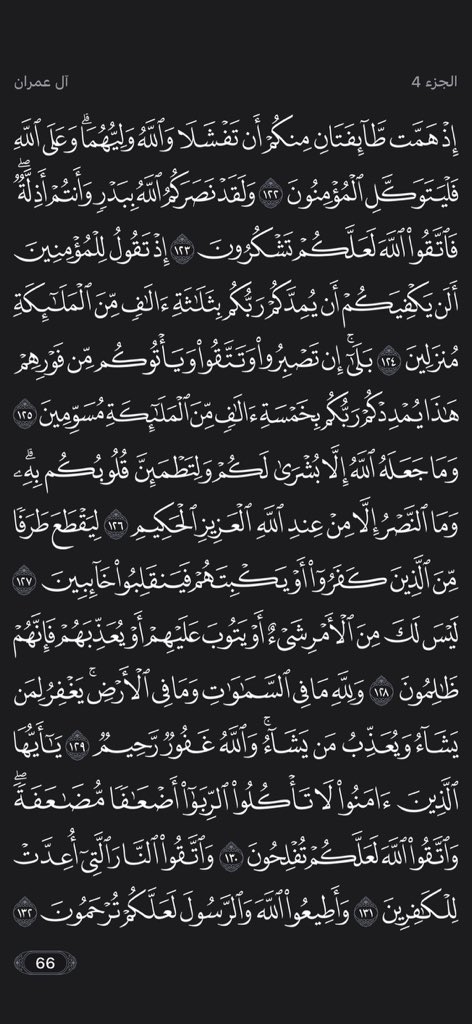 آل عمران
الجزء 4
إِذۡ هَمَّت طَّآئِفَتَانِ مِنكُمۡ أَن تَفۡشَلَا وَٱللَّهُ وَلِيُّهُمَاۗ وَعَلَى ٱللَّهِ
فَلۡيَتَوَكَّلِ ٱلۡمُؤۡمِنُونَ ١٢٢ وَلَقَدۡ نَصَرَكُمُ ٱللَّهُ بِبَدۡرٖ وَأَنتُمۡ أَذِلَّةٞۖ
فَٱتَّقُواْ ٱللَّهَ لَعَلَّكُمۡ تَشۡكُرُونَ ١٢٣ إِذۡ تَقُولُ لِلۡمُؤۡمِنِينَ
أَلَن يَكۡفِيَكُمۡ أَن يُمِدَّكُمۡ رَبُّكُم بِثَلَٰثَةِ ءَالَٰفٖ مِّنَ ٱلۡمَلَٰٓئِكَةِ
مُنزَلِينَ ١٢٤ بَلَىٰٓۚ إِن تَصۡبِرُواْ وَتَتَّقُواْ وَيَأۡتُوكُم مِّن فَوۡرِهِمۡ
هَٰذَا يُمۡدِدۡكُمۡ رَبُّكُم بِخَمۡسَةِ ءَالَٰفٖ مِّنَ ٱلۡمَلَٰٓئِكَةِ مُسَوِّمِينَ ١٢٥
وَمَا جَعَلَهُ ٱللَّهُ إِلَّا بُشۡرَىٰ لَكُمۡ وَلِتَطۡمَئِنَّ قُلُوبُكُم بِهِۦۗ
وَمَا ٱلنَّصۡرُ إِلَّا مِنۡ عِندِ ٱللَّهِ ٱلۡعَزِيزِ ٱلۡحَكِيمِ ١٢٦ لِيَقۡطَعَ طَرَفٗا
مِّنَ ٱلَّذِينَ كَفَرُوٓاْ أَوۡ يَكۡبِتَهُمۡ فَيَنقَلِبُواْ خَآئِبِينَ ١٢٧
لَيۡسَ لَكَ مِنَ ٱلۡأَمۡرِ شَيۡءٌ أَوۡ يَتُوبَ عَلَيۡهِمۡ أَوۡ يُعَذِّبَهُمۡ فَإِنَّهُمۡ
ظَٰلِمُونَ ١٢٨ وَلِلَّهِ مَا فِي ٱلسَّمَٰوَٰتِ وَمَا فِي ٱلۡأَرۡضِۚ يَغۡفِرُ لِمَن
يَشَآءُ وَيُعَذِّبُ مَن يَشَآءُۚ وَٱللَّهُ غَفُورٞ رَّحِيمٞ ١٢٩ يَٰٓأَيُّهَا
ٱلَّذِينَ ءَامَنُواْ لَا تَأۡكُلُواْ ٱلرِّبَوٰٓاْ أَضۡعَٰفٗا مُّضَٰعَفَةٗۖ
وَٱتَّقُواْ ٱللَّهَ لَعَلَّكُمۡ تُفۡلِحُونَ ١٣٠ وَٱتَّقُواْ ٱلنَّارَ ٱلَّتِيٓ أُعِدَّتۡ
لِلۡكَٰفِرِينَ ١٣١ وَأَطِيعُواْ ٱللَّهَ وَٱلرَّسُولَ لَعَلَّكُمۡ تُرۡحَمُونَ ١٣٢
66